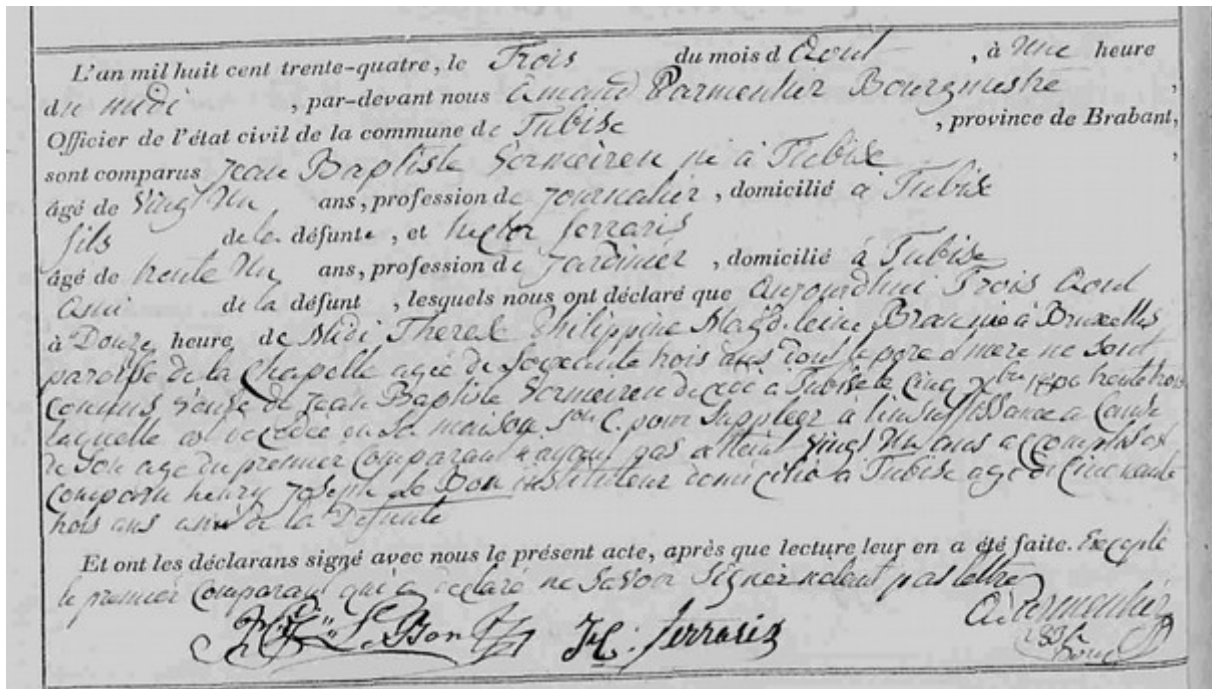 L'an mil huit cent trente-quatre, le Trois du mois d'Aout, à Une heure
du midi, par-devant nous Amand Parmentier Bourgmestre,
Officier de l'état civil de la commune de Tubise, province de Brabant,
sont comparus Jean Baptiste Vermeiren né à Tubise,
âgé de Vingt Un ans, profession de Journalier, domicilié à Tubise
fils de la défunte, et hector ferraris
âgé de trente Un ans, profession de Jardinier, domicilié à Tubise
ami de la défunt, lesquels nous ont déclaré que Aujourdhui Trois Aout
à Douze heure de Midi Therese Philippine Magdeleine née à Bruxelles
paroisse de la Chapelle agée de soixante trois ans dont le pere et mere ne sont
connus Veuve de Jean Baptiste Vermeiren décédé à Tubise le cinq trente trois
laquelle est décédée en sa maison pour suppleer à l'insuffissance a Cause
de son age du premier Comparant n'ayant pas atteint Vingt Un ans accomplis est
comparu henry Joseph Le Bon instituteur domicilié à Tubise agé de Cincquante
trois ans ami de la Defunte
Et ont les déclarans signé avec nous le présent acte, après que lecture leur en a été faite. Excepté
le premier Comparant qui a declaré ne savoir signer n'etant pas lettré
Le Bon ferraris A. Parmentier